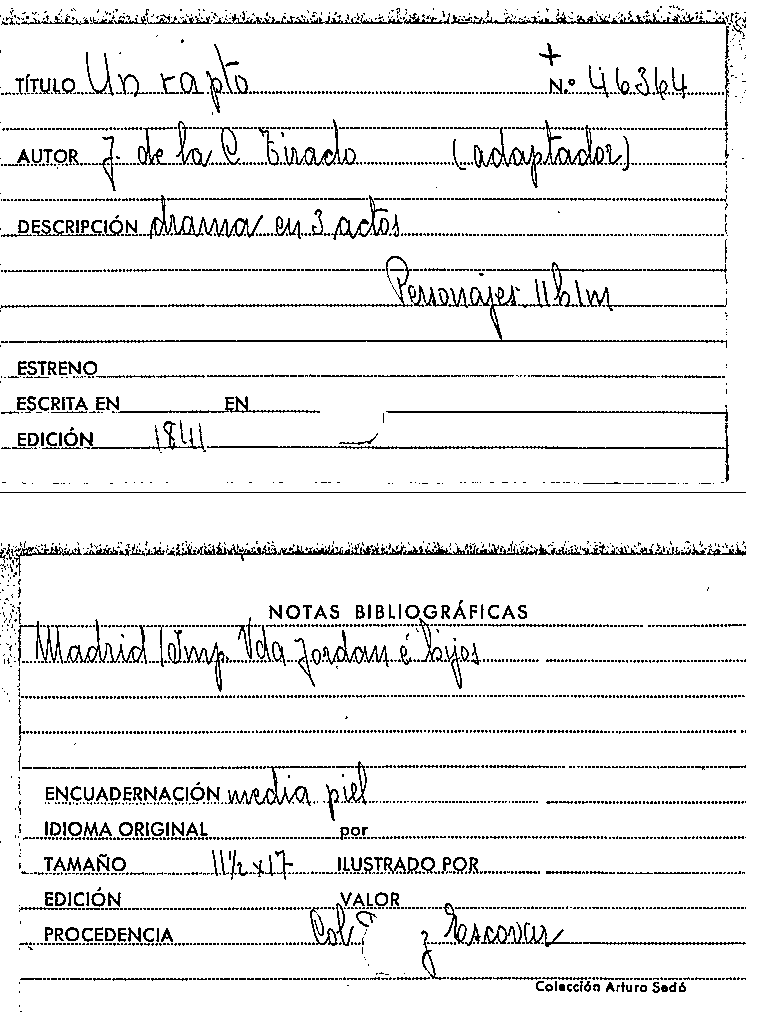 +
TÍTULO Un rapto N.º 46364
AUTOR J. de la C. Tirado (adaptador)
DESCRIPCIÓN drama en 3 actos
Personajes 11 h 1 m
ESTRENO
ESCRITA EN EN
EDICIÓN 1841
NOTAS BIBLIOGRÁFICAS
Madrid Imp. Vda Jordan é hijos
ENCUADERNACIÓN media piel
IDIOMA ORIGINAL por
TAMAÑO 11½ x 17 ILUSTRADO POR
EDICIÓN VALOR
PROCEDENCIA Col z Escovar
Colección Arturo Sedó